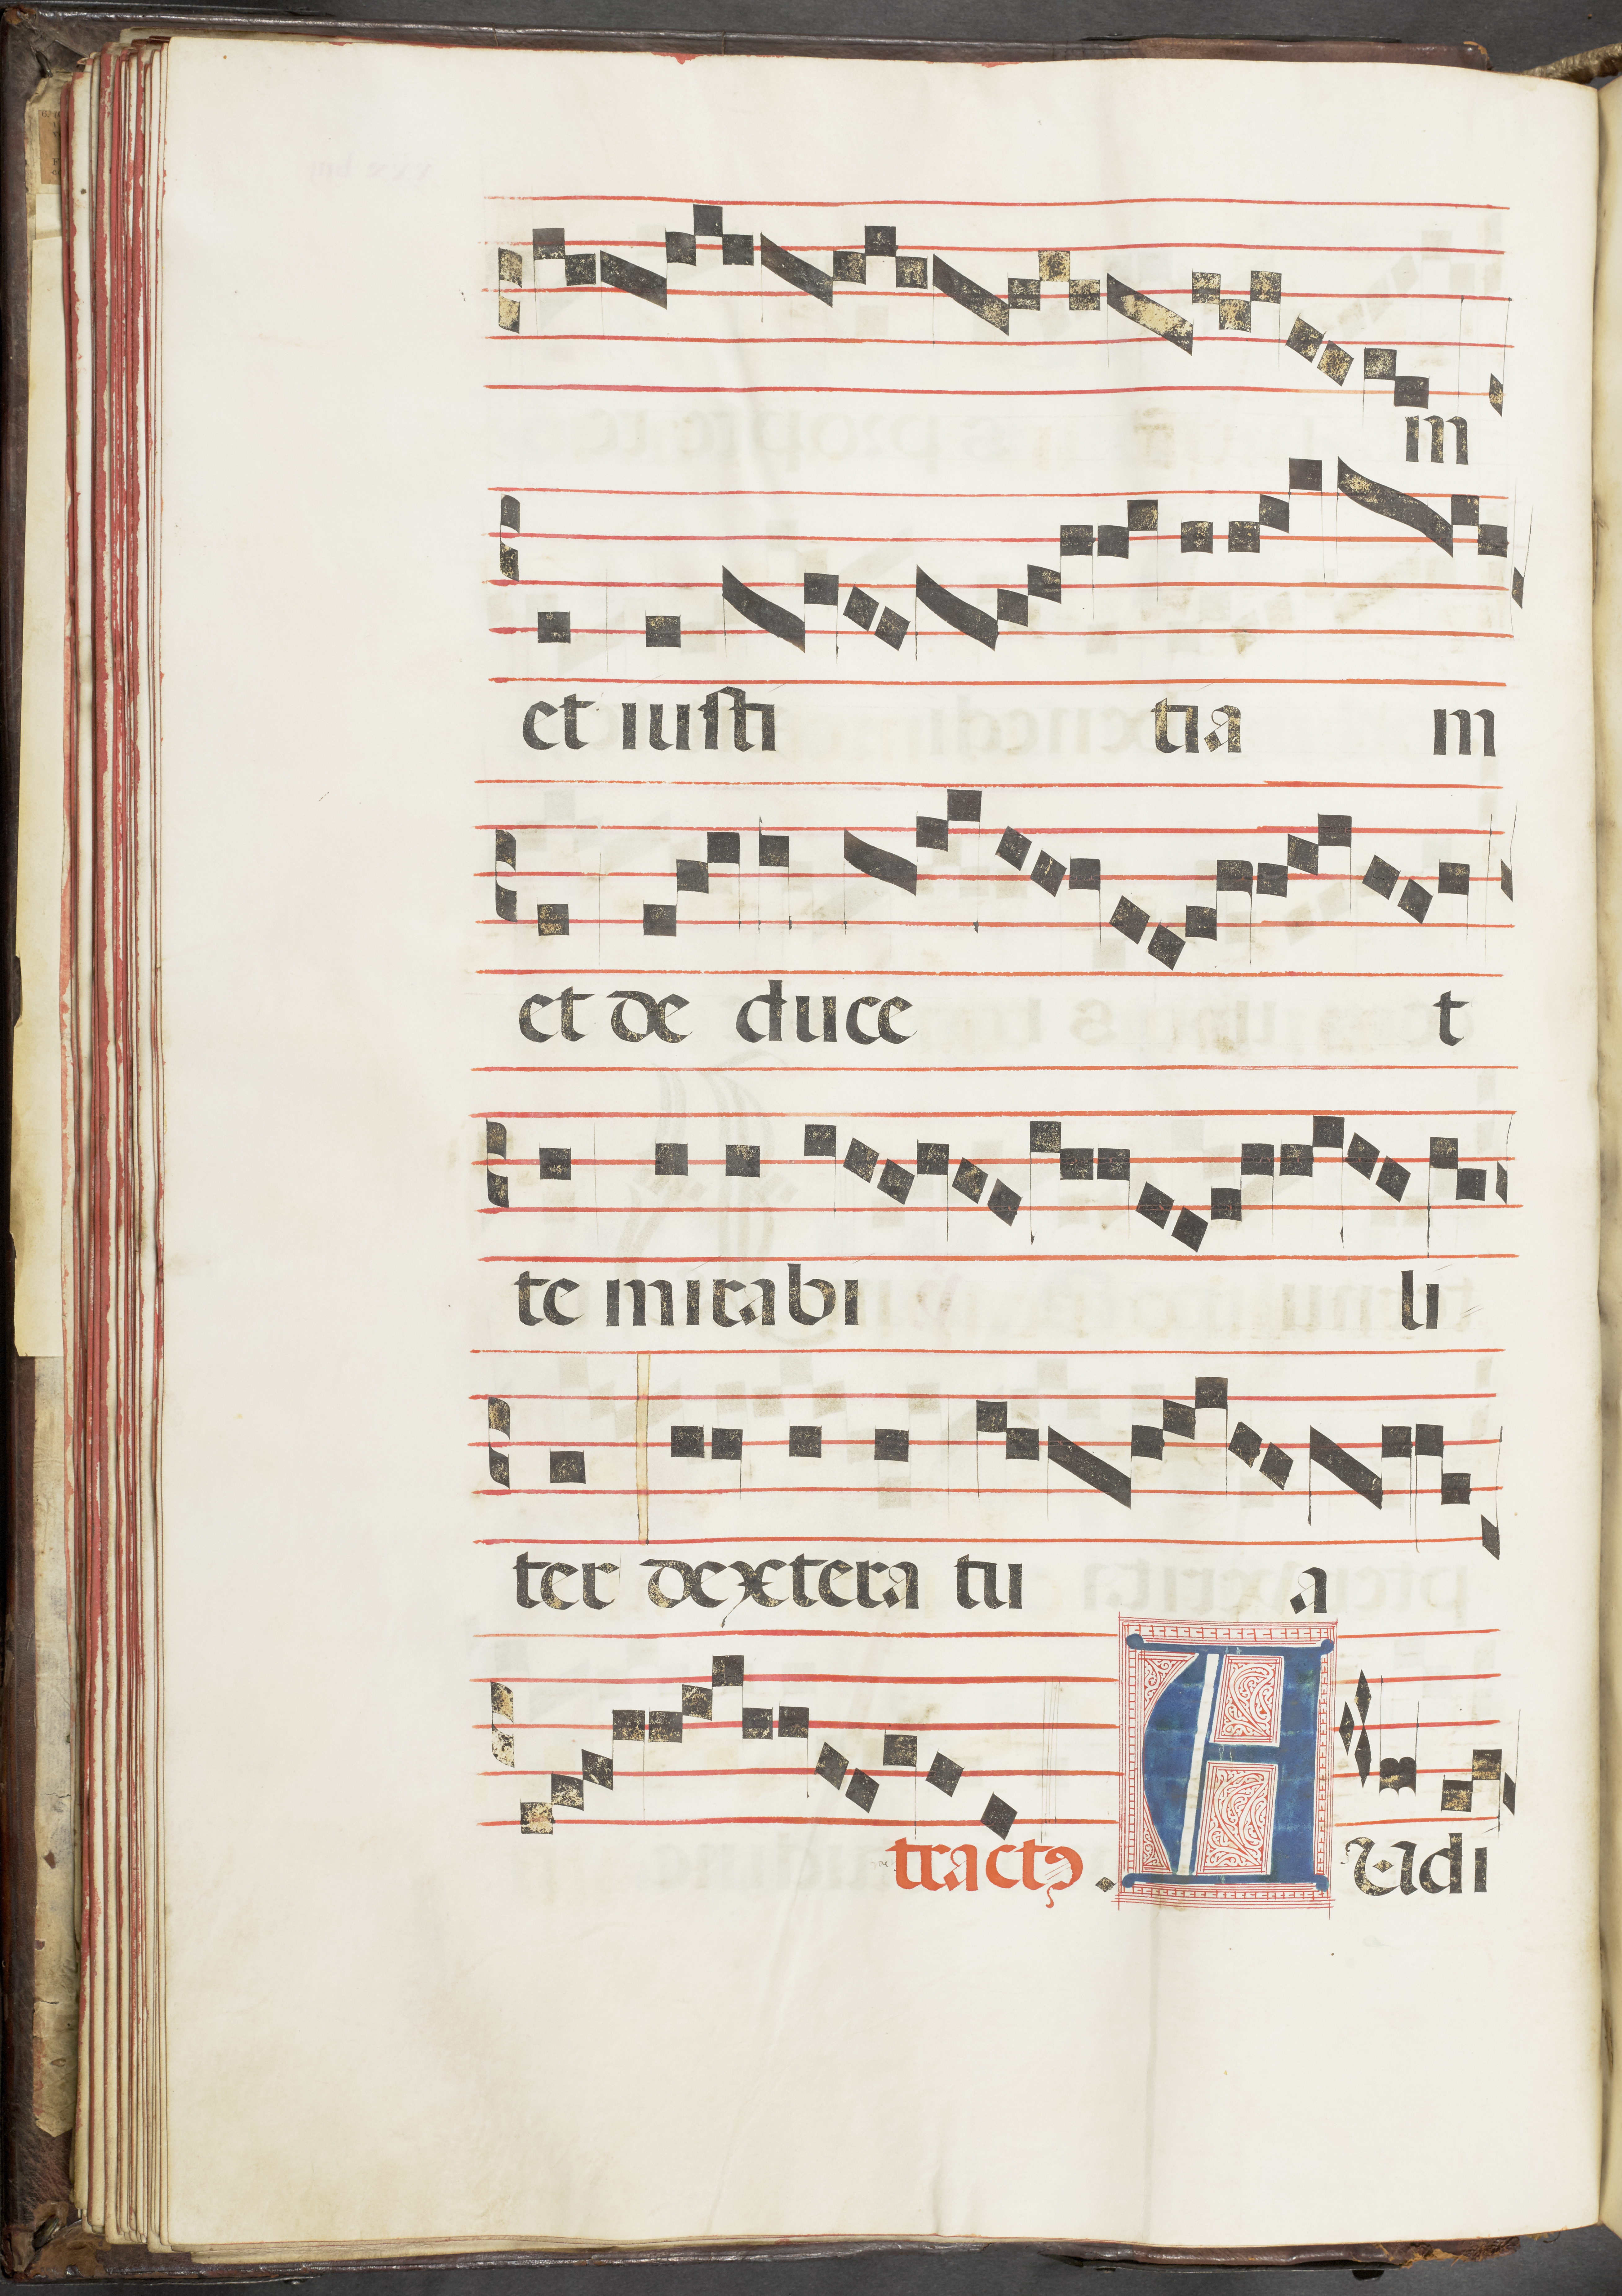 m
et iusti tia m
et de duce t
te mirabi li
ter dextera tu a
tractꝯ . A Udi